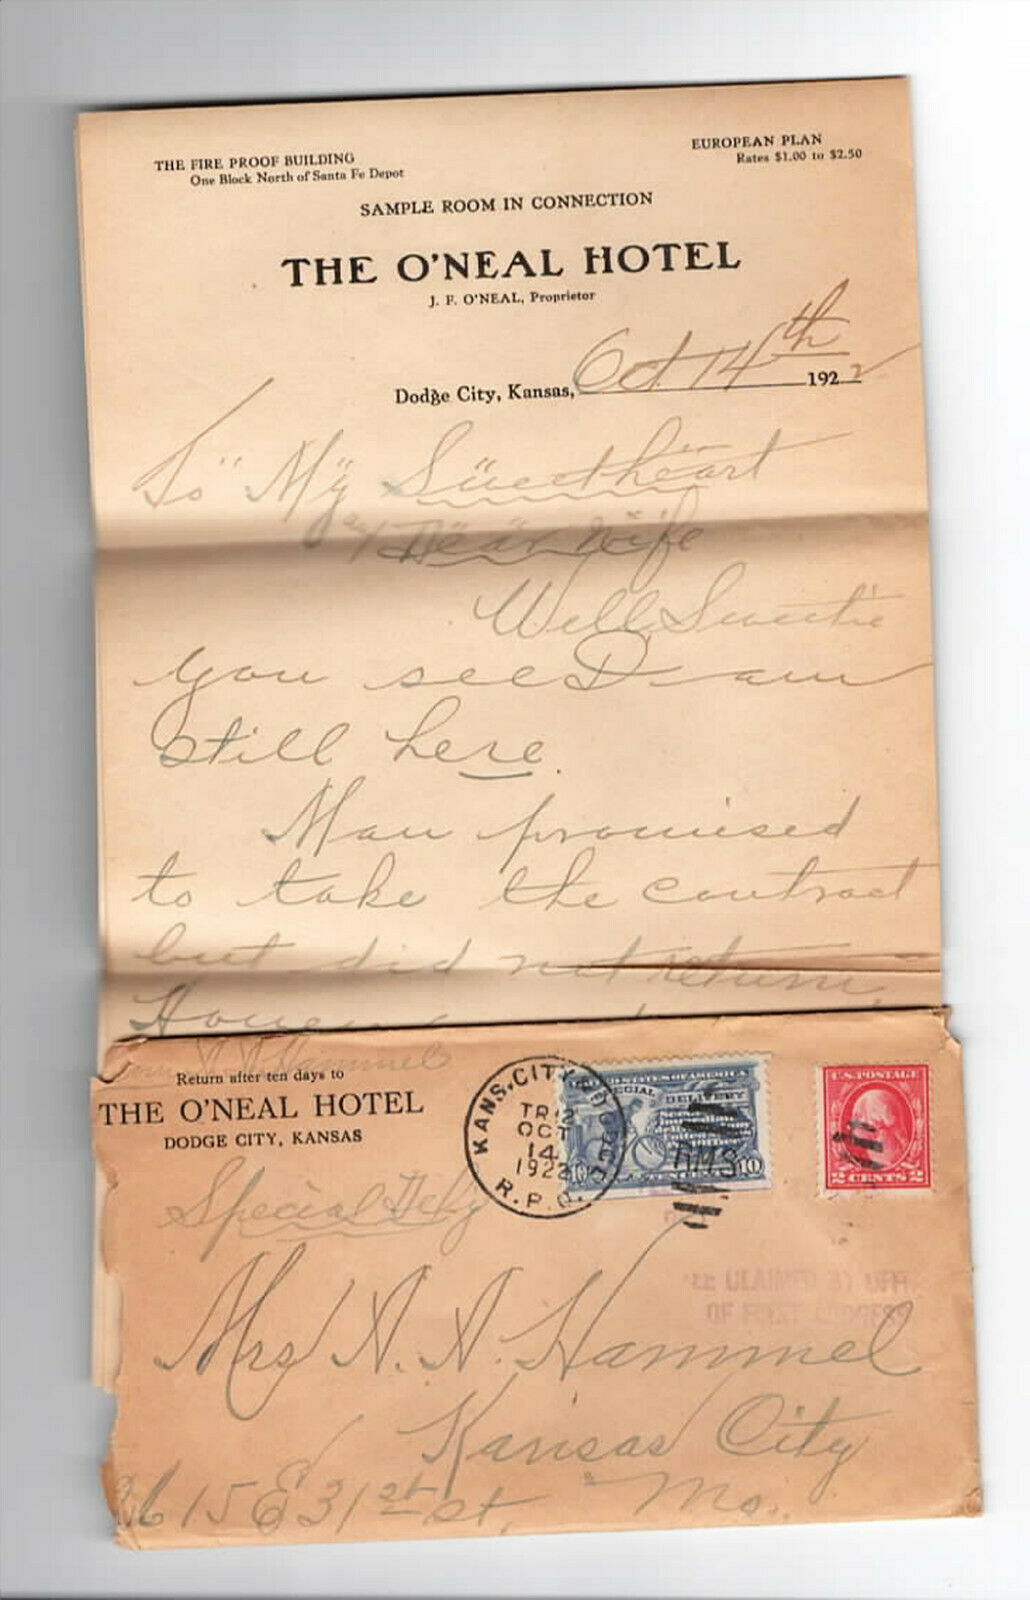 THE FIRE PROOF BUILDING
One Block North of Santa Fe Depot
EUROPEAN PLAN
Rates $1.00 to $2.50
SAMPLE ROOM IN CONNECTION
THE O'NEAL HOTEL
J. F. O'NEAL, Proprietor
Dodge City, Kansas, Oct. 14th 1922
To "My" Sweetheart
Dear Wife
Well Sweetie
you see I am
still here.
Man promised
to take the contract
but did not return
Hammel
Return after ten days to
THE O'NEAL HOTEL
DODGE CITY, KANSAS
Special Dely
KANS. CITY
TR 2
OCT
14
1922
R.P.O.
UNITED STATES OF AMERICA
SPECIAL DELIVERY
10
10
RMS
U.S. POSTAGE
2 CENTS 2
FEE CLAIMED BY OFFICE
OF FIRST ADDRESS
Mrs A. A. Hammel
Kansas City
3615 E 31st st, Mo.